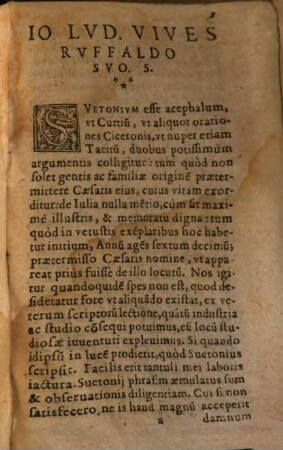 IO. LVD. VIVES
RVFFALDO
SVO. S.
***
SVETONIVM esse acephalum,
vt Curtiũ, vt aliquot oratio
nes Ciceronis, vt nuper etiam
Tacitũ, duobus potissimum
argumentis colligitur: tum quòd non
solet gentis ac familiæ originẽ præter-
mittere Cæsaris eius, cuius vitam exor-
ditur: de Iulia nulla mẽtio, cùm sit maxi
mè illustris, & memoratu digna: tum
quòd in vetustis exẽplaribus hoc habe
tur initium, Annũ agẽs sextum decimũ;
prætermisso Cæsaris nomine, vt appa-
reat prius fuisse de illo locutũ. Nos igi
tur quandoquidẽ spes non est, quod de-
sideratur fore vt aliquãdo existat, ex ve
terum scriptorũ lectione, quãtũ industria
ac studio cõsequi potuimus, eũ locũ stu
diosæ iuuentuti expleuimus. Si quando
id ipsũ in lucẽ prodierit, quòd Suetonius
scripsit. Facilis erit tantuli mei laboris
iactura. Suetonij phrasim æmulatus sum
& obseruationis diligentiam. Cui si non
satisfecero, ne is haud magnũ acceperit
a damnum